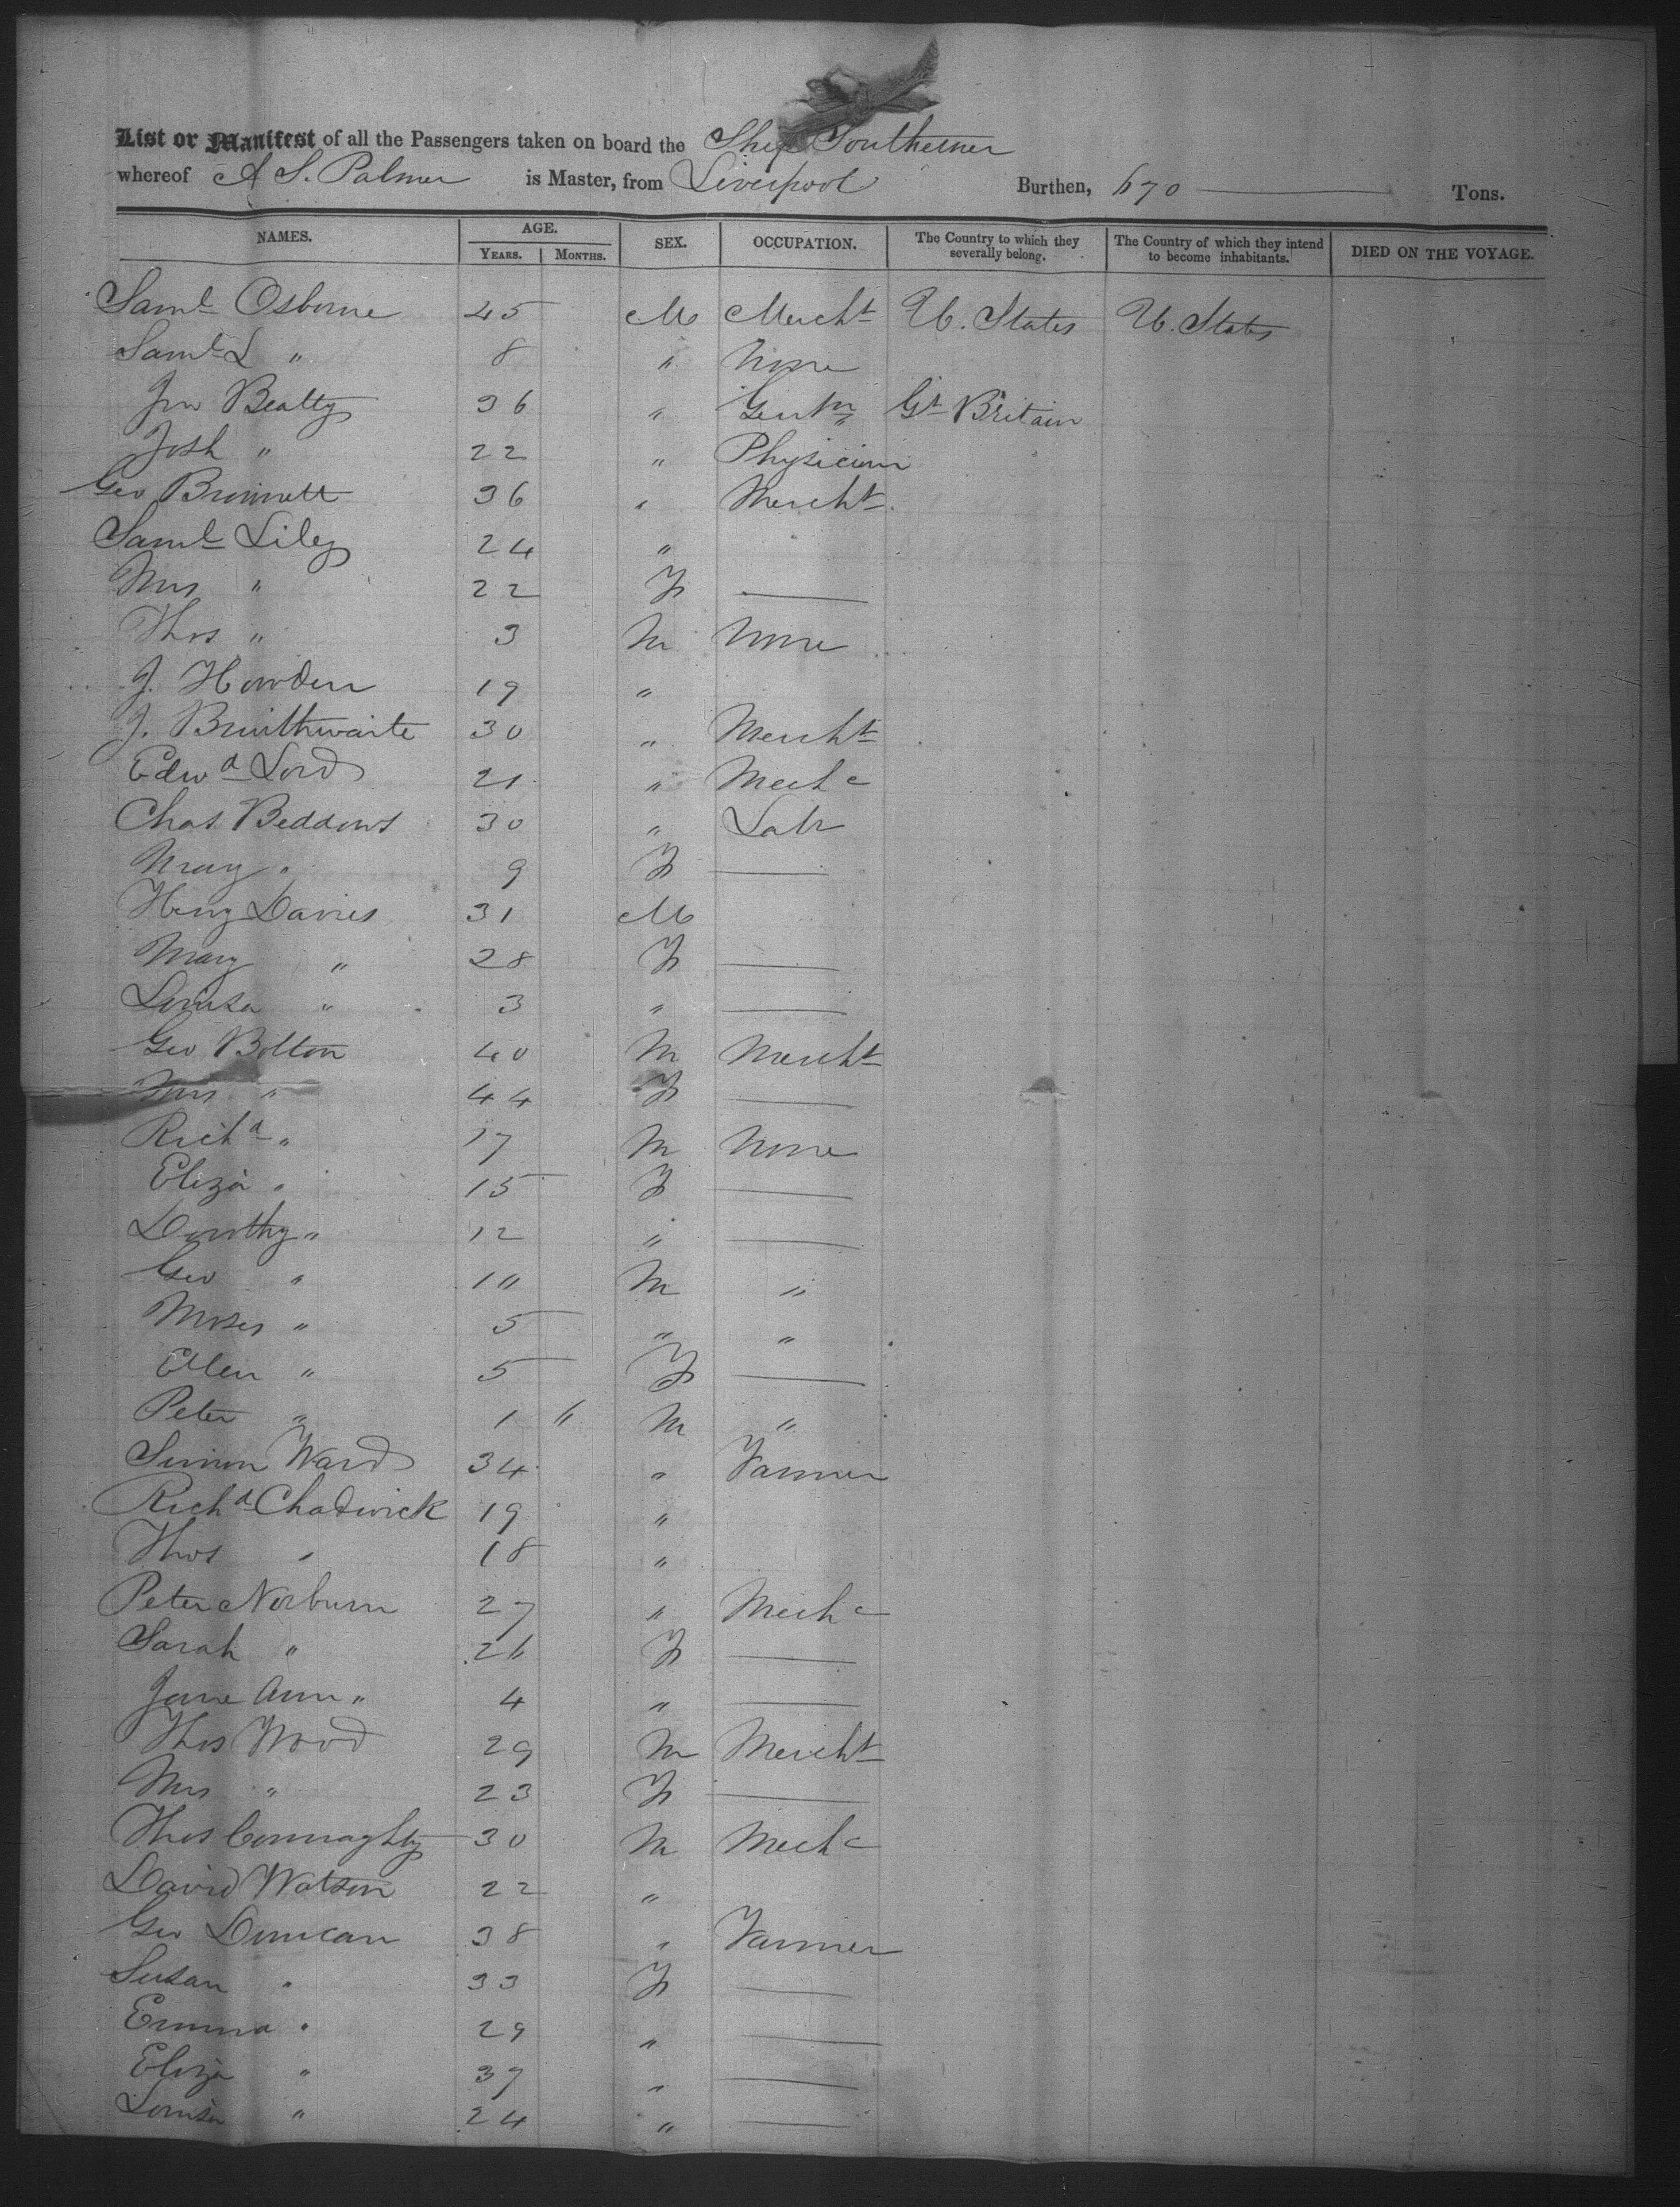 List or Manifest of all the Passengers taken on board the Ship Southerner
whereof A S. Palmer is Master, from Liverpool Burthen, 670 Tons.
NAMES. AGE. YEARS. MONTHS. SEX. OCCUPATION. The Country to which they severally belong. The Country of which they intend to become inhabitants. DIED ON THE VOYAGE.
Saml Osborne 45 M Mercht U. States U. States
Saml L " 8 " None
Jno Beatty 36 " Gentn Gt Britain
Josh " 22 " Physician
Geo 36 " Mercht
Saml Liley 24 "
Mrs " 22 F —
Thos " 3 M None
J. Howden 19 "
J. Braithwaite 30 " Mercht
Edwd Lord 21 " Mechc
Chas Beddows 30 " Labr
Mary " 9 F —
Heny Davies 31 M
Mary " 28 F —
Louisa " 3 " —
Geo Bolton 40 M Mercht
Mrs " 44 F —
Richd " 17 M None
Eliza " 15 F —
Dorothy " 12 " —
Geo " 10 M "
Moses " 5 " "
Ellen " 5 F —
Peter " 1 " M "
Simon Ward 34 " Farmer
Richd Chadwick 19 "
Thos " 18 "
Peter Norburn 27 " Mechc
Sarah " 26 F —
Jane Ann " 4 " —
Thos Wood 29 M Mercht
Mrs " 23 F —
Thos Connaghty 30 M Mechc
David Watson 22 "
Geo Duncan 38 " Farmer
Susan " 33 F —
Emma " 29 " —
Eliza " 37 " —
Louisa " 24 " —